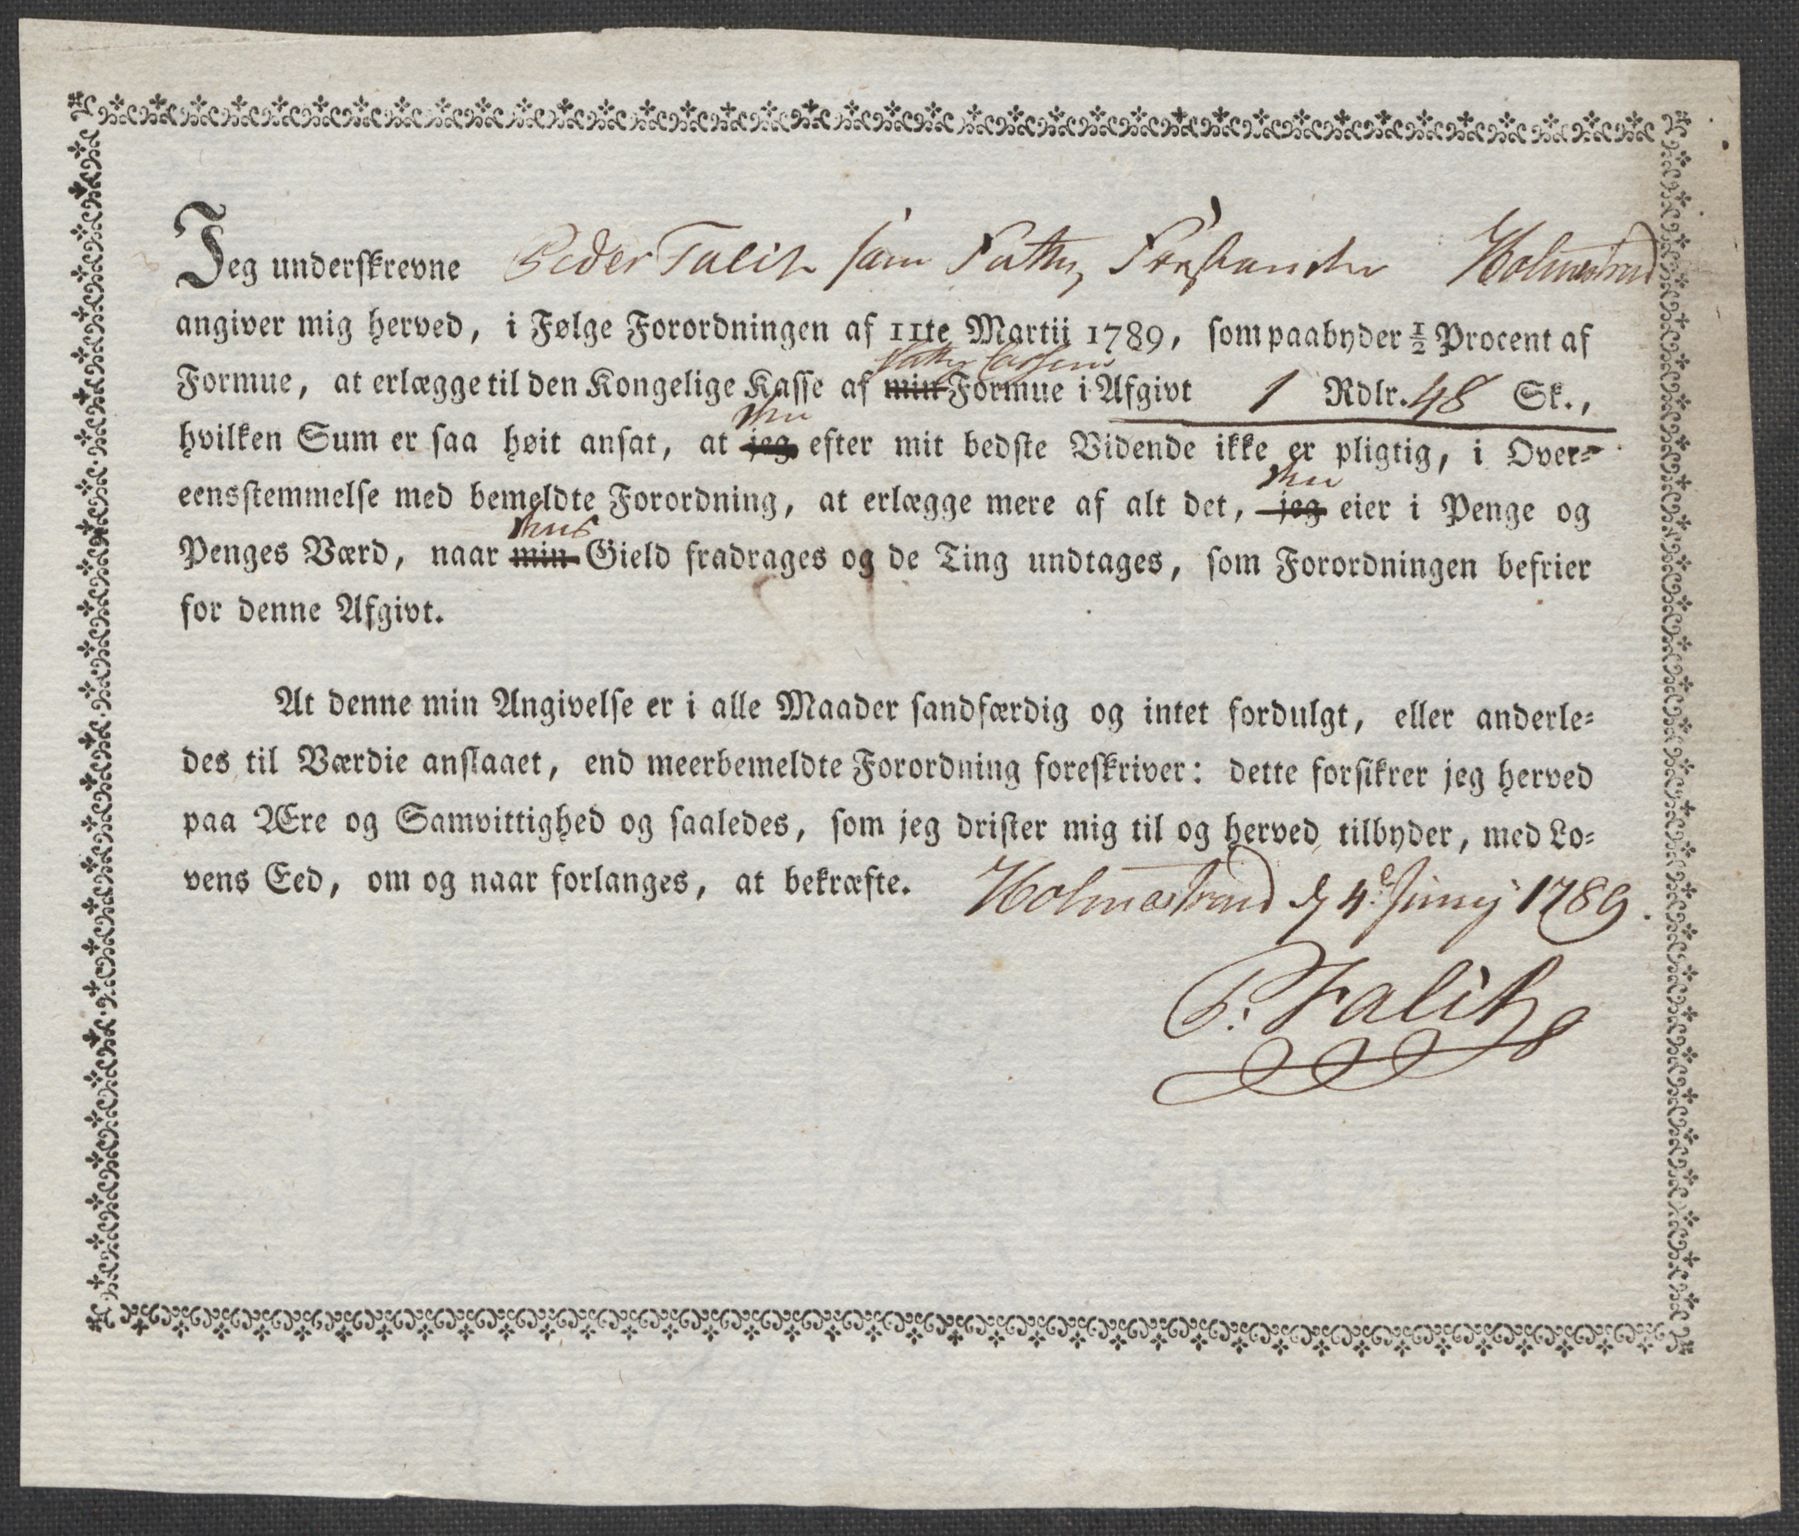 Jeg underskrevne Peder Falch som Fattig Forstander Holmestrand
angiver mig herved, i Følge Forordningen af 11te Martii 1789, som paabyder 1/2 Procent af
Fattig Cassens
Formue, at erlægge til den Kongelige Kasse af min Formue i Afgivt 1 Rdlr. 48 Sk.,
den
hvilken Sum er saa høit ansat, at jeg efter mit bedste Vidende ikke er pligtig, i Over-
den
eensstemmelse med bemeldte Forordning, at erlægge mere af alt det, jeg eier i Penge og
dens
Penges Værd, naar min Gield fradrages og de Ting undtages, som Forordningen befrier
for denne Afgivt.
At denne min Angivelse er i alle Maader sandfærdig og intet fordulgt, eller anderle-
des til Værdie anslaaet, end meerbemeldte Forordning foreskriver: dette forsikrer jeg herved
paa Ære og Samvittighed og saaledes, som jeg drister mig til og herved tilbyder, med Lo-
vens Eed, om og naar forlanges, at bekræfte. Holmestrand d 4de Junij 1789.
P. Falch